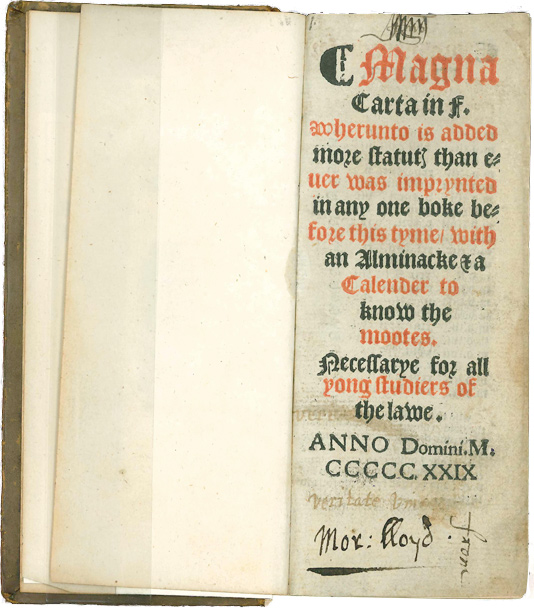 Magna
Carta in f.
wherunto is added
more statutꝭ than e⸗
uer was imprynted
in any one boke be⸗
fore this tyme/ with
an Alminacke & a
Calender to
know the
mootes.
Necessarye for all
yong studiers of
the lawe.
ANNO Domini.M.
CCCCC.XXIX
veritate
Mor: lloyd.